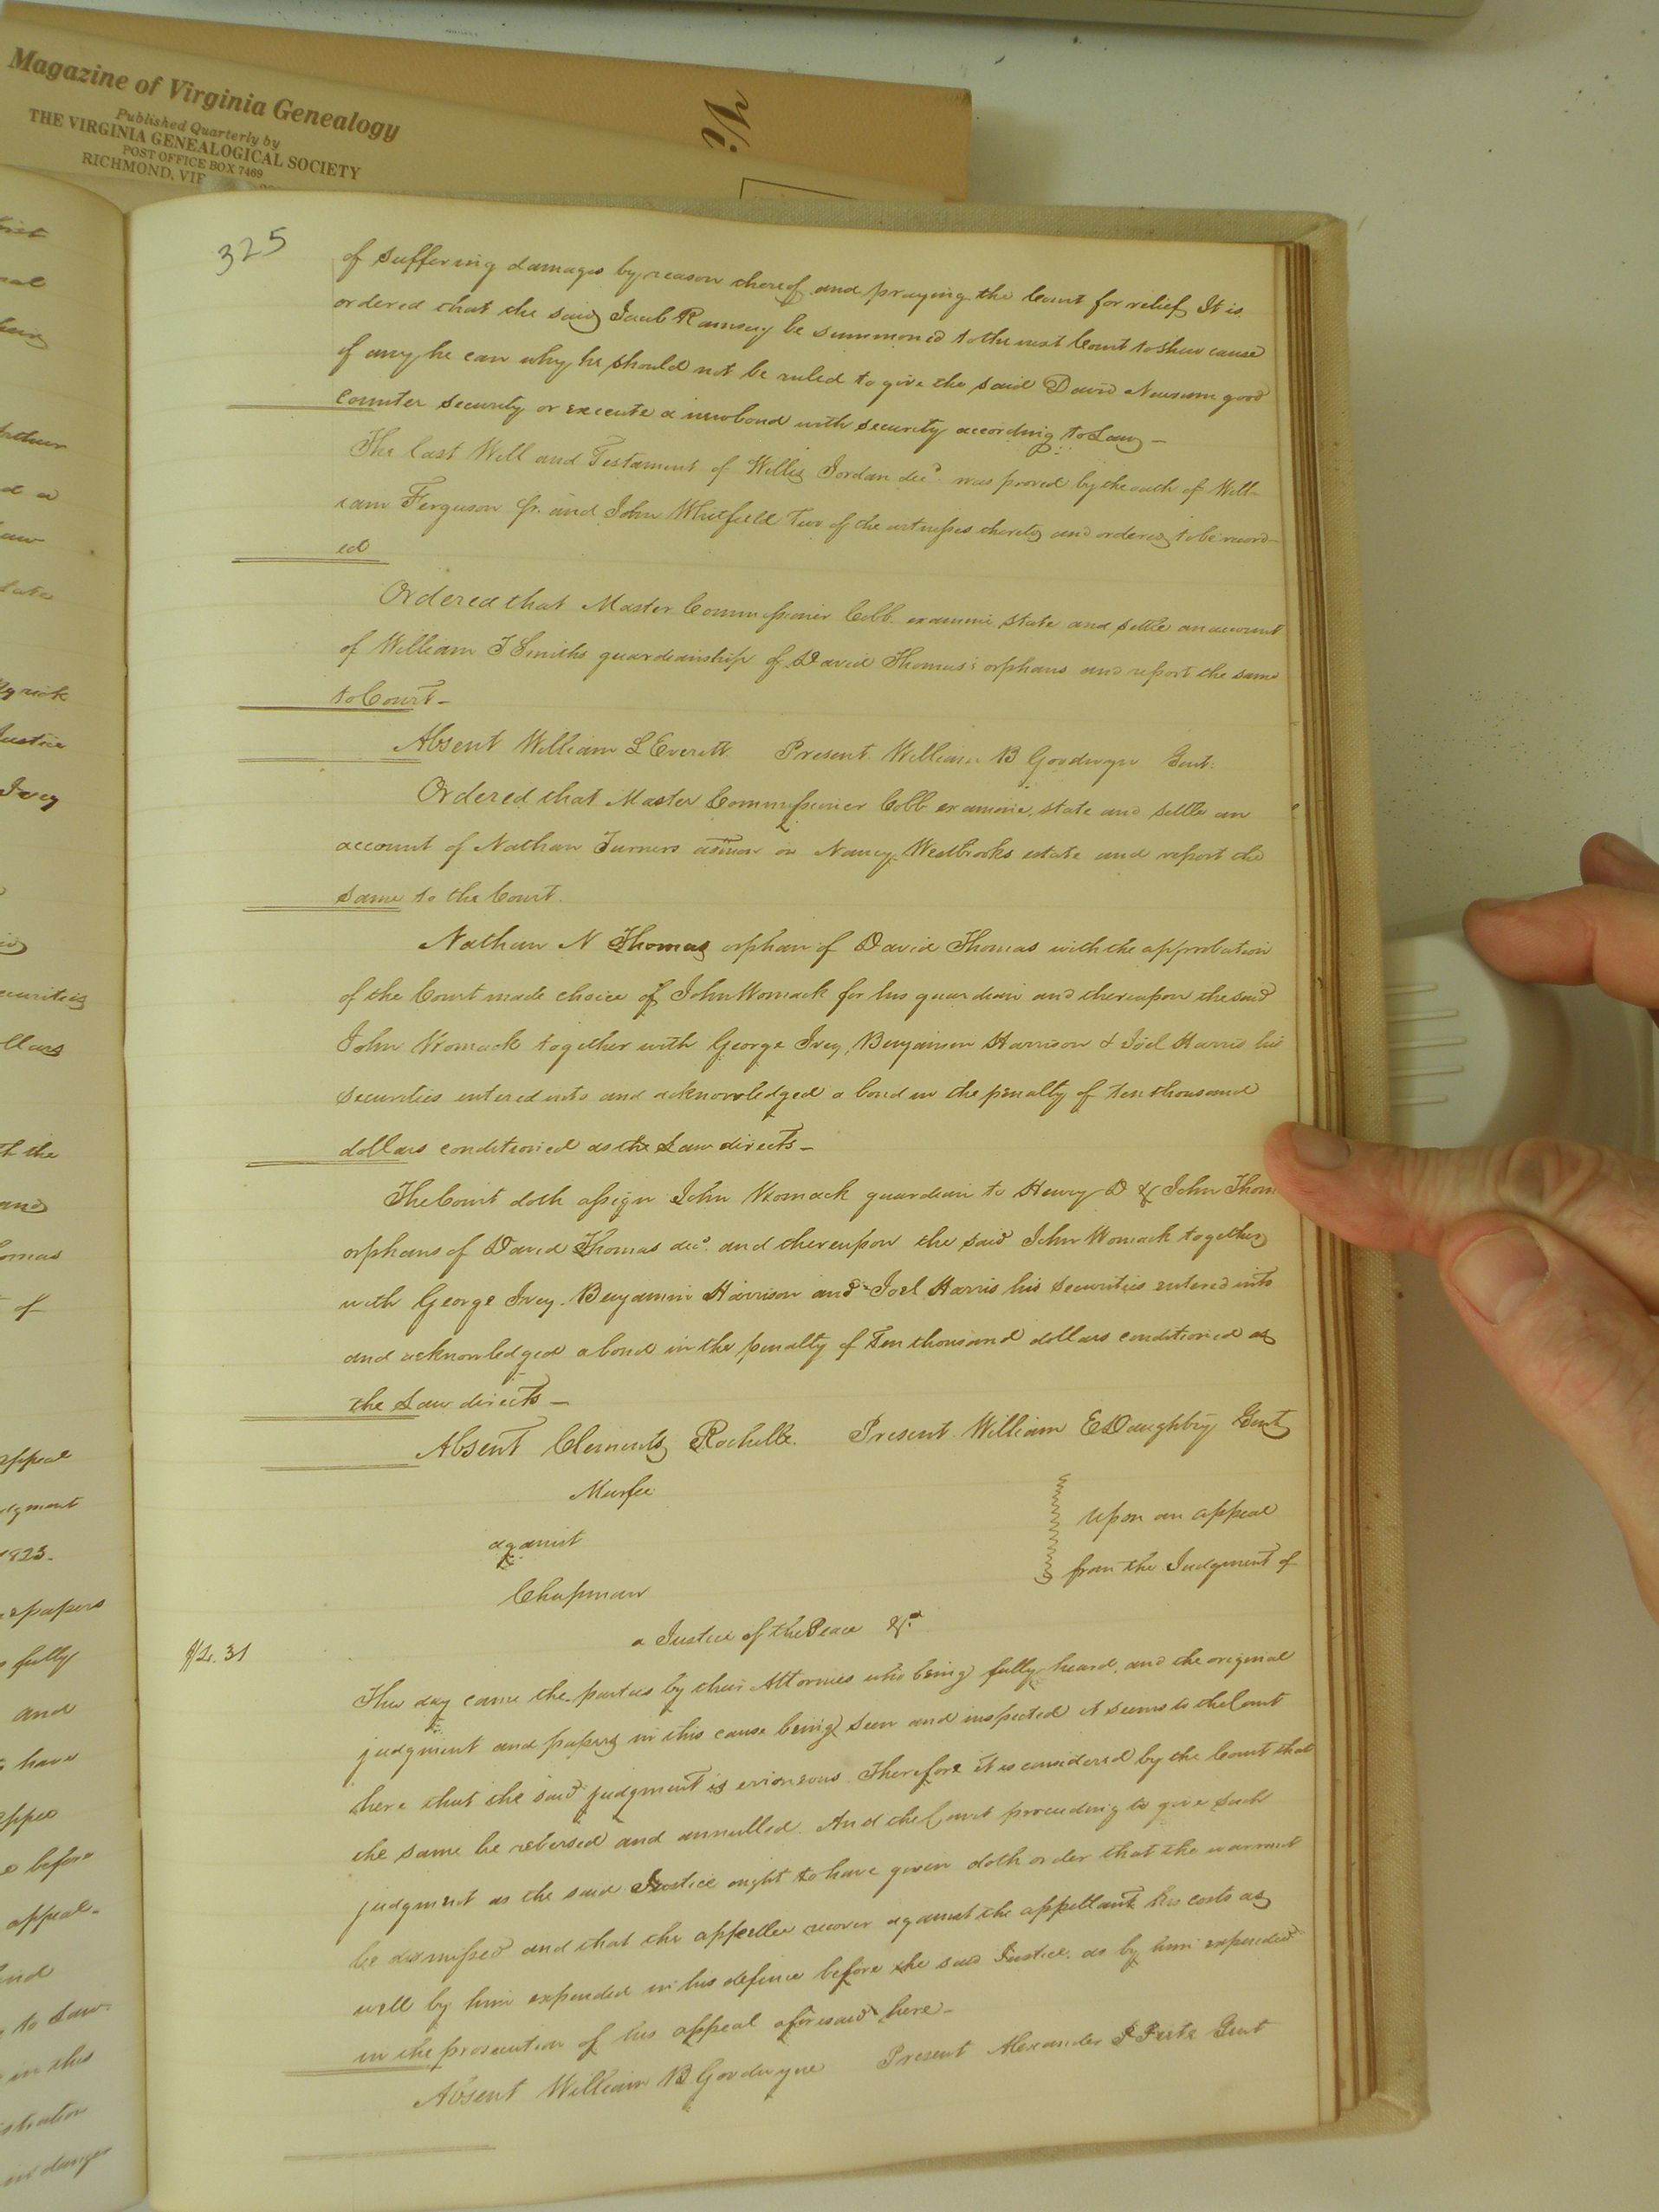 Magazine of Virginia Genealogy
Published Quarterly by
THE VIRGINIA GENEALOGICAL SOCIETY
POST OFFICE BOX 7469
RICHMOND, VIR
325
of suffering damages by reason thereof and praying the Court for relief It is
ordered that the said Jacob Ramsey be summoned to the next Court to shew cause
if any he can why he should not be ruled to give the said David Newsum good
counter security or execute a new bond with security according to Law –
The last Will and Testament of Willis Jordan decd was proved by the oath of Will-
iam Ferguson Jr. and John Whitfield two of the witnesses thereto and ordered to be record-
ed
Ordered that Master Commissioner Cobb examine state and settle an account
of William J Smiths guardianship of David Thomas's orphans and report the same
to Court –
Absent William L Everett Present William B Goodwyn Gent.
Ordered that Master Commissioner Cobb examine, state and settle an
account of Nathan Turners admon on Nancy Westbrooks estate and report the
same to the Court.
Nathan N Thomas orphan of David Thomas with the approbation
of the Court made choice of John Womack for his guardian and thereupon the said
John Womack together with George Ivey, Benjamin Harrison & Joel Harris his
securities entered into and acknowledged a bond in the penalty of ten thousand
dollars conditioned as the Law directs –
The Court doth assign John Womack guardian to Henry D & John Thom
orphans of David Thomas decd. and thereupon the said John Womack together
with George Ivey. Benjamin Harrison and Joel Harris his securities entered into
and acknowledged a bond in the penalty of Ten thousand dollars conditioned as
the Law directs –
Absent Clements Rochelle. Present William E Daughtry Gent
Murfee
against
Chapman
Upon an appeal
from the Judgment of
a Justice of the Peace &c
31
This day came the parties by their Attornies who being fully heard, and the original
judgment and papers in this cause being seen and inspected it seems to the Court
here that the said judgment is erroneous Therefore it is considered by the Court that
the same be reversed and annulled. And the Court proceeding to give such
judgment as the said Justice ought to have given doth order that the warrant
be dismissed and that the appellee recover against the appellant his costs as
well by him expended in his defence before the said Justice, as by him expended
in the prosecution of his appeal aforesaid here –
Absent William B. Goodwyne Present Alexander P Peete Gent